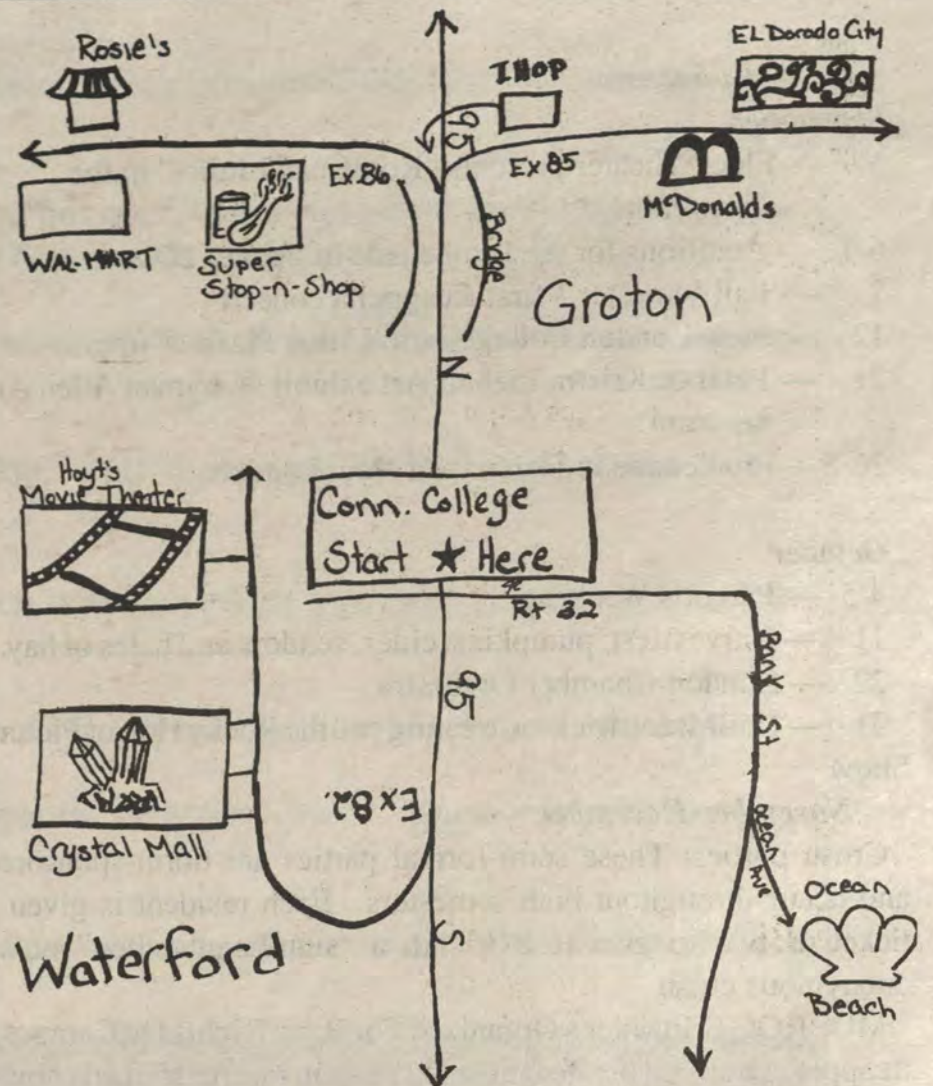 Rosie's
EL Dorado City
IHOP
95
Ex.86
Ex 85
McDonalds
WAL-MART
Super
Stop-n-Shop
Bridge
Groton
N
Hoyt's
Movie Theater
Conn. College
Start ★ Here
Rt 32
Bank St
95
Ex 82.
Crystal Mall
Ocean Ave
Ocean
Beach
Waterford
S